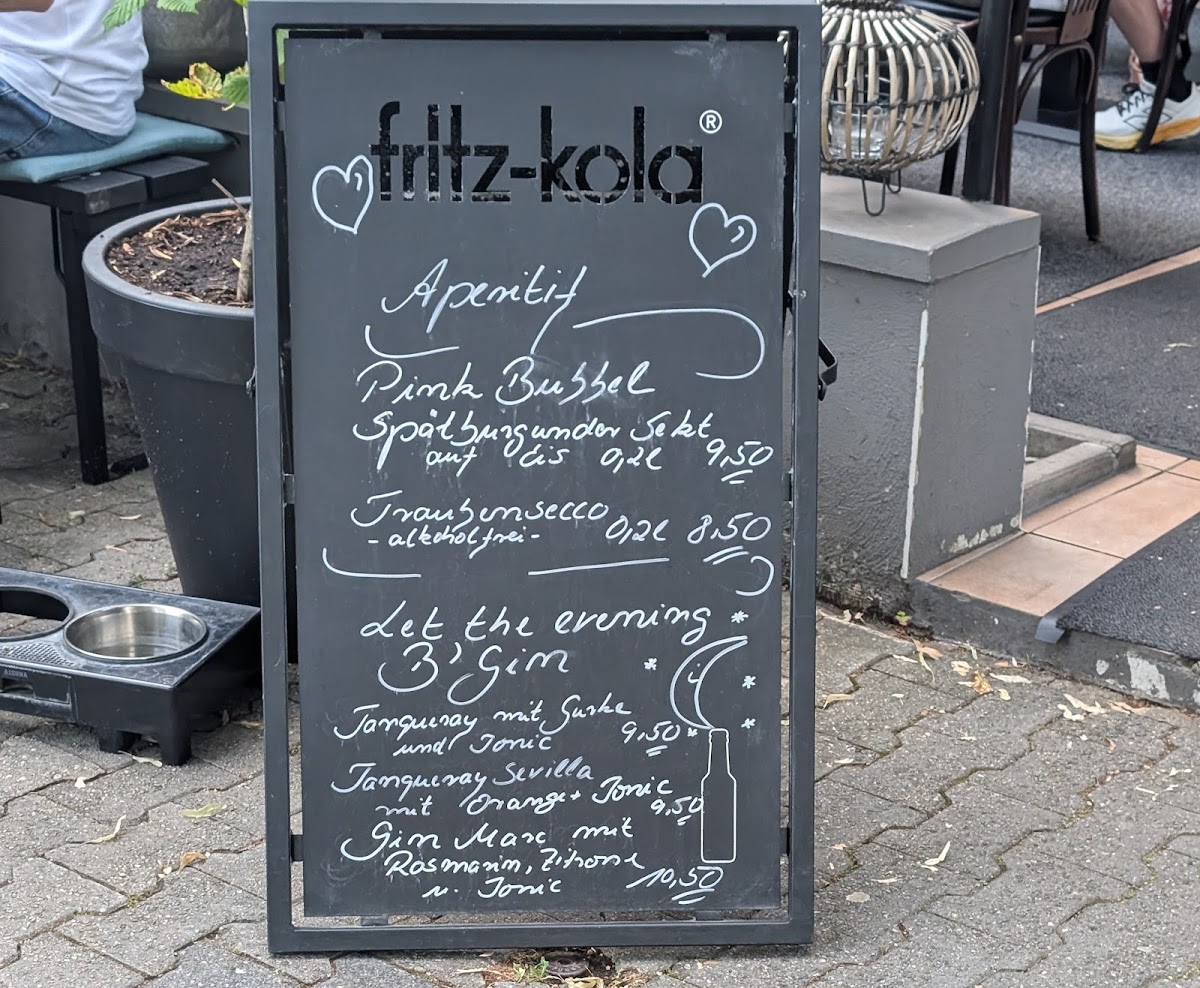 fritz-kola®
Aperitif
Pink Bubbel
Spätburgunder Sekt
auf Eis 0,2l 9,50
Traubensecco
-alkoholfrei- 0,2l 8,50
Let the evening
B'Gin
Tanqueray mit Gurke
und Tonic 9,50
Tanqueray Sevilla
mit Orange + Tonic
9,50
Gin Mare mit
Rosmarin, Zitrone
u. Tonic 10,50